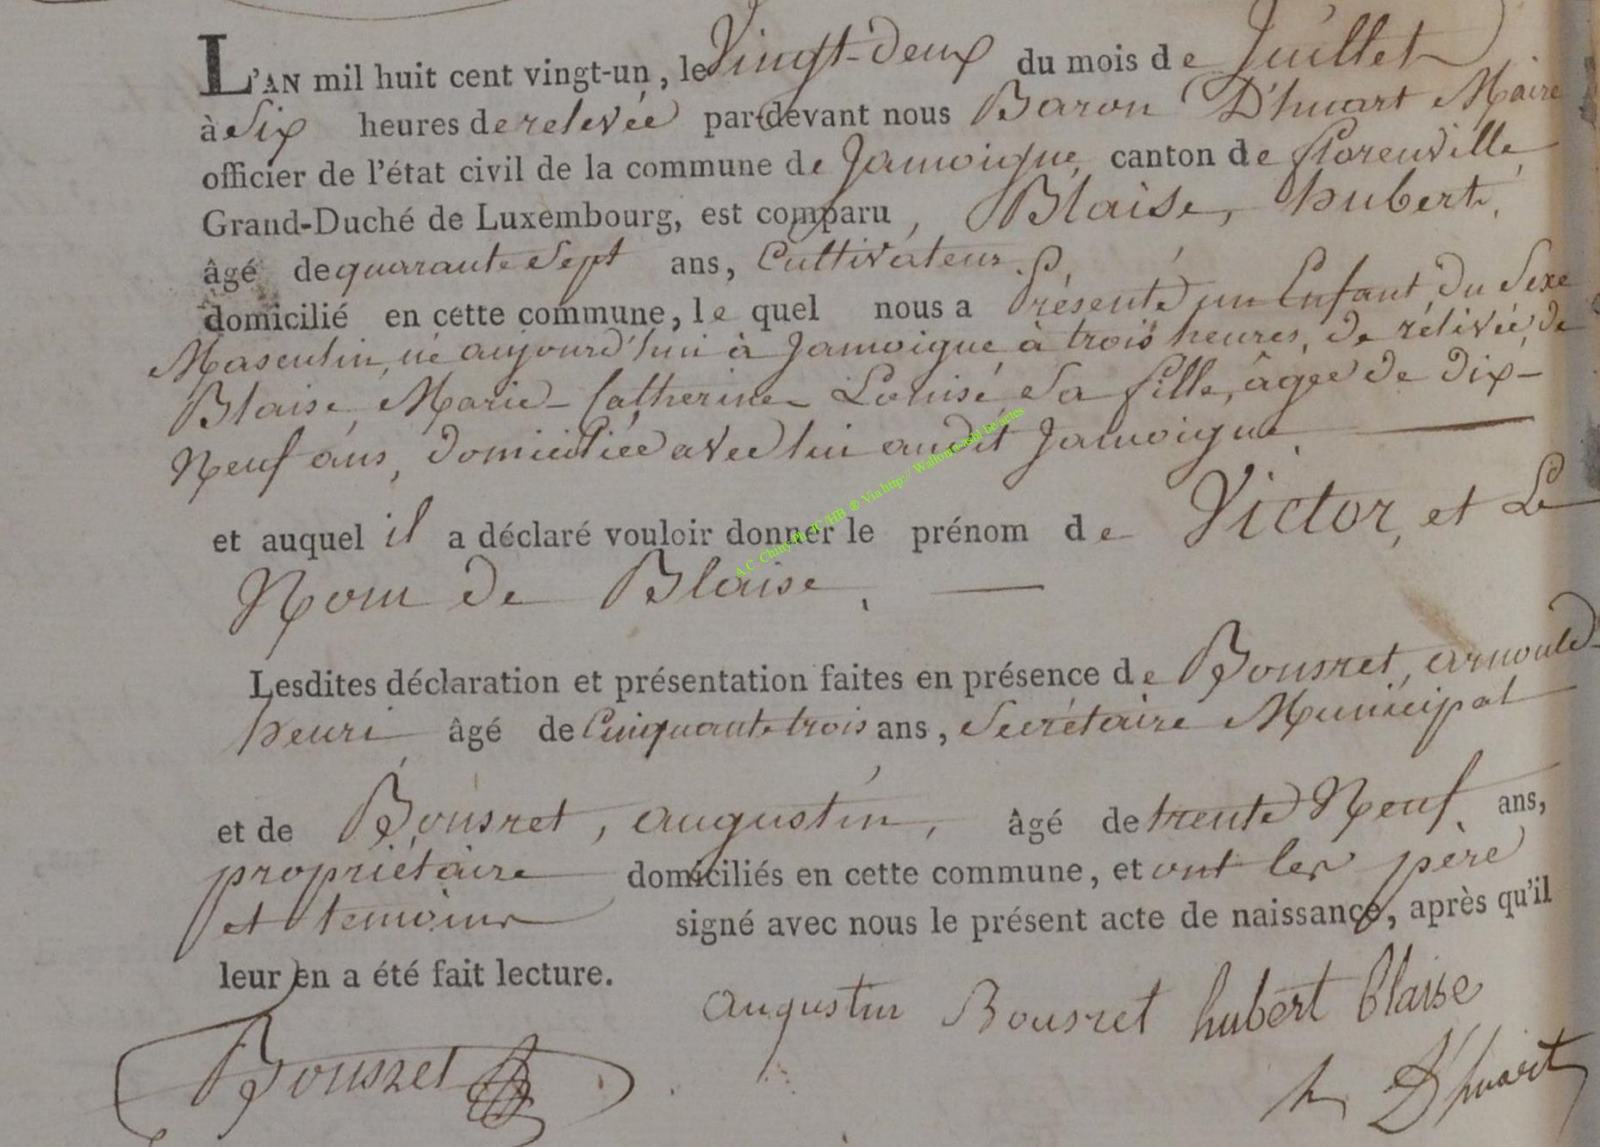 L'AN mil huit cent vingt-un, le Vingt-deux du mois de Juillet
à Six heures de relevée pardevant nous Baron D'huart Maire
officier de l'état civil de la commune de Jamoigne, canton de florenville
Grand-Duché de Luxembourg, est comparu, Blaise, hubert,
âgé de quarante Sept ans, Cultivateur
domicilié en cette commune, le quel nous a Présenté un Enfant Du Sexe
Masculin, né aujourd'hui à Jamoigne à trois heures, de rélivée, de
Blaise, Marie-Catherine-Louise Sa fille, âgée de dix-
Neuf ans, domiciliée avec lui audit Jamoigne.
et auquel il a déclaré vouloir donner le prénom de Victor, et Le
Nom de Blaise.
Lesdites déclaration et présentation faites en présence de Bousret, arnould-
henri âgé de Cinquante trois ans, Secrétaire Municipal
et de Bousret, augustin, âgé de trente Neuf ans,
propriétaire domiciliés en cette commune, et ont les père
et temoins signé avec nous le présent acte de naissance, après qu'il
leur en a été fait lecture.
augustin Bousret hubert blaise
Bousret D'huart
A.C Chiny Ph. JC/HB ® Via http:// Wallonia-asbl.be/actes